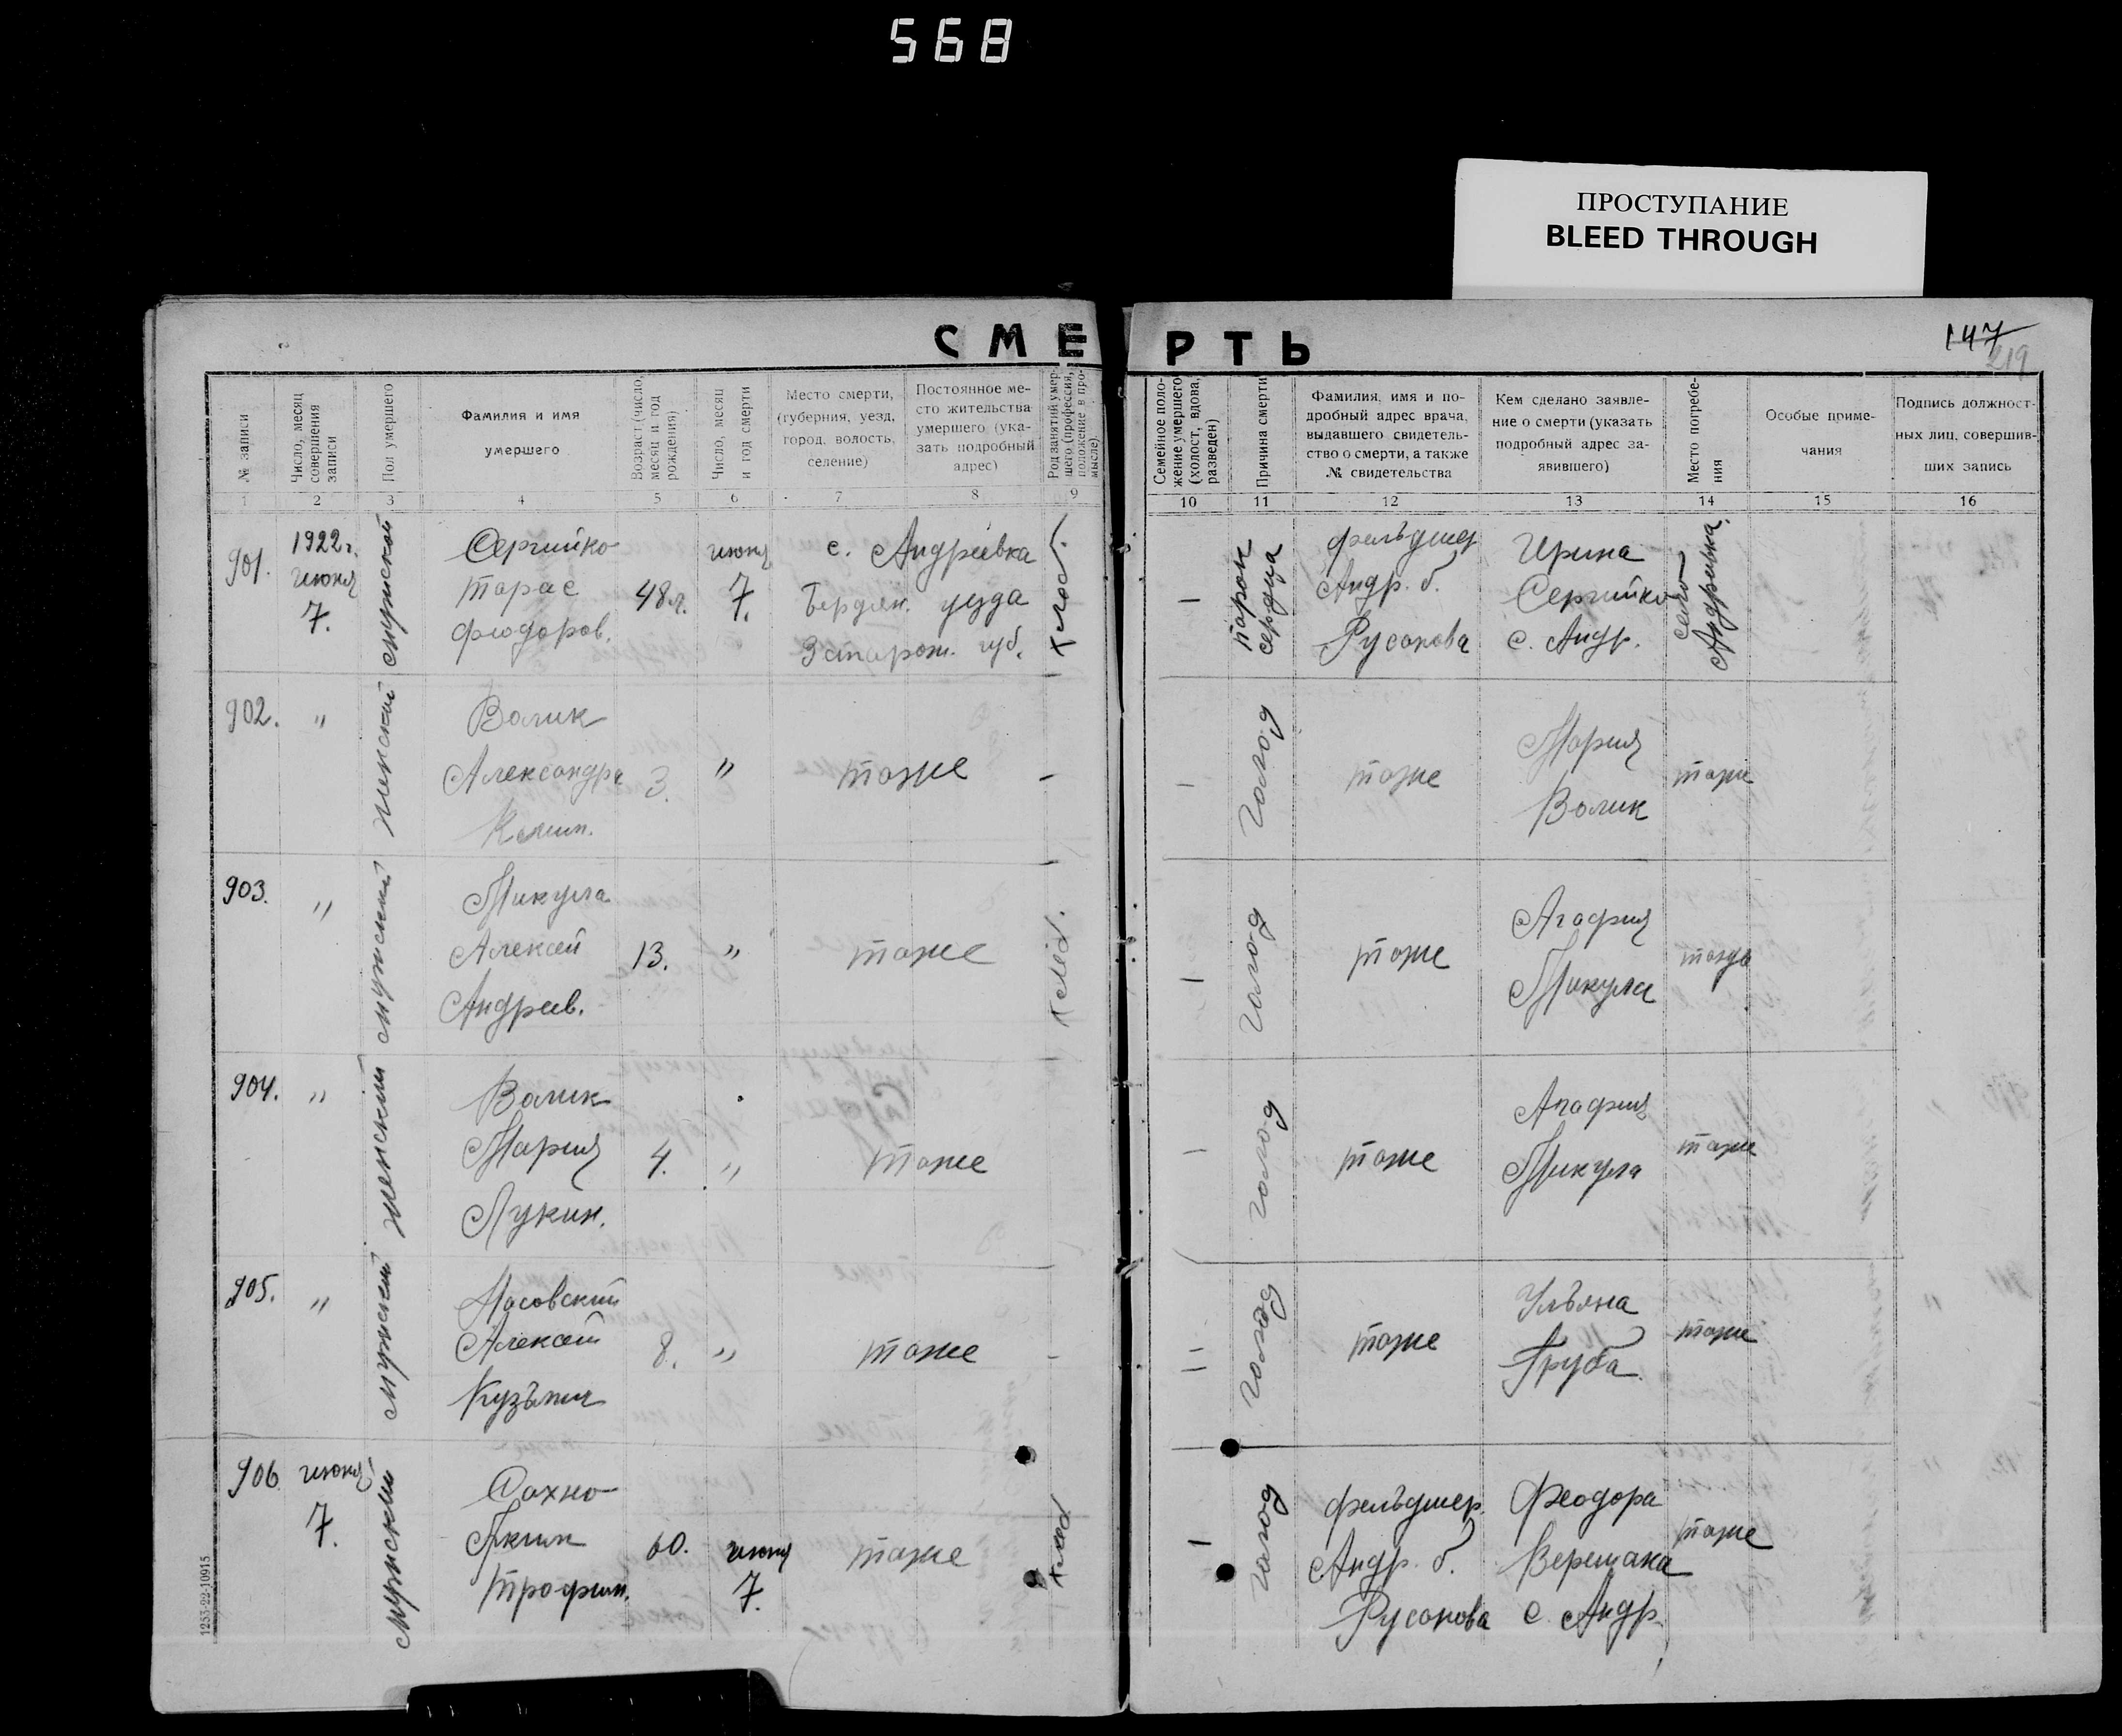 568
ПРОСТУПАНИЕ
BLEED THROUGH
СМЕРТЬ
147
219
№ записи
Число, месяц
совершения
записи
Пол умершего
Фамилия и имя
умершего
Возраст (число,
месяц и год
рождения)
Число, месяц
и год смерти
Место смерти,
(губерния, уезд,
город, волость,
селение)
Постоянное ме-
сто жительства
умершего (ука-
зать подробный
адрес)
Род занятий умер-
шего (профессия,
положение в про-
мысле).
Семейное поло-
жение умершего
(холост, вдова,
разведен)
Причина смерти
Фамилия, имя и по-
дробный адрес врача,
выдавшего свидетель-
ство о смерти, а также
№ свидетельства
Кем сделано заявле-
ние о смерти (указать
подробный адрес за-
явившего)
Место погребе-
ния
Особые приме-
чания
Подпись должност-
ных лиц, совершив-
ших запись
1 2 3 4 5 6 7 8 9 10 11 12 13 14 15 16
901.
1922 г.
июня
7.
мужской
Сергийко
Тарас
Феодоров.
48 л.
июня
7.
с. Андреевка
Бердян. уезда
Запорож. губ.
хлеб.
—
порок
сердца
фельдшер
Андр. б.
Русанова
Ирина
Сергийко
с. Андр.
село
Андреевка.
902.
"
женский
Волик
Александра
3.
"
тоже
—
—
голод
тоже
Мария
Волик
тоже
903.
"
мужский
Микула
Алексей
Андреев.
13.
"
тоже
хлеб.
—
голод
тоже
Агафия
Микула
тоже
904.
"
женский
Волик
Мария
Лукин.
4.
"
тоже
—
голод
тоже
Агафия
Микула
тоже
905.
"
мужский
Носовский
Алексей
Кузьмич
8.
"
тоже
—
=
голод
тоже
Ульяна
Груба
тоже
906
июня
7.
мужский
Сахно
Яким
Трофим.
60.
июня
7.
тоже
хлеб
—
голод
фельдшер.
Андр. б.
Русанова
Феодора
Верещака
с. Андр.
тоже
1253-22-10915